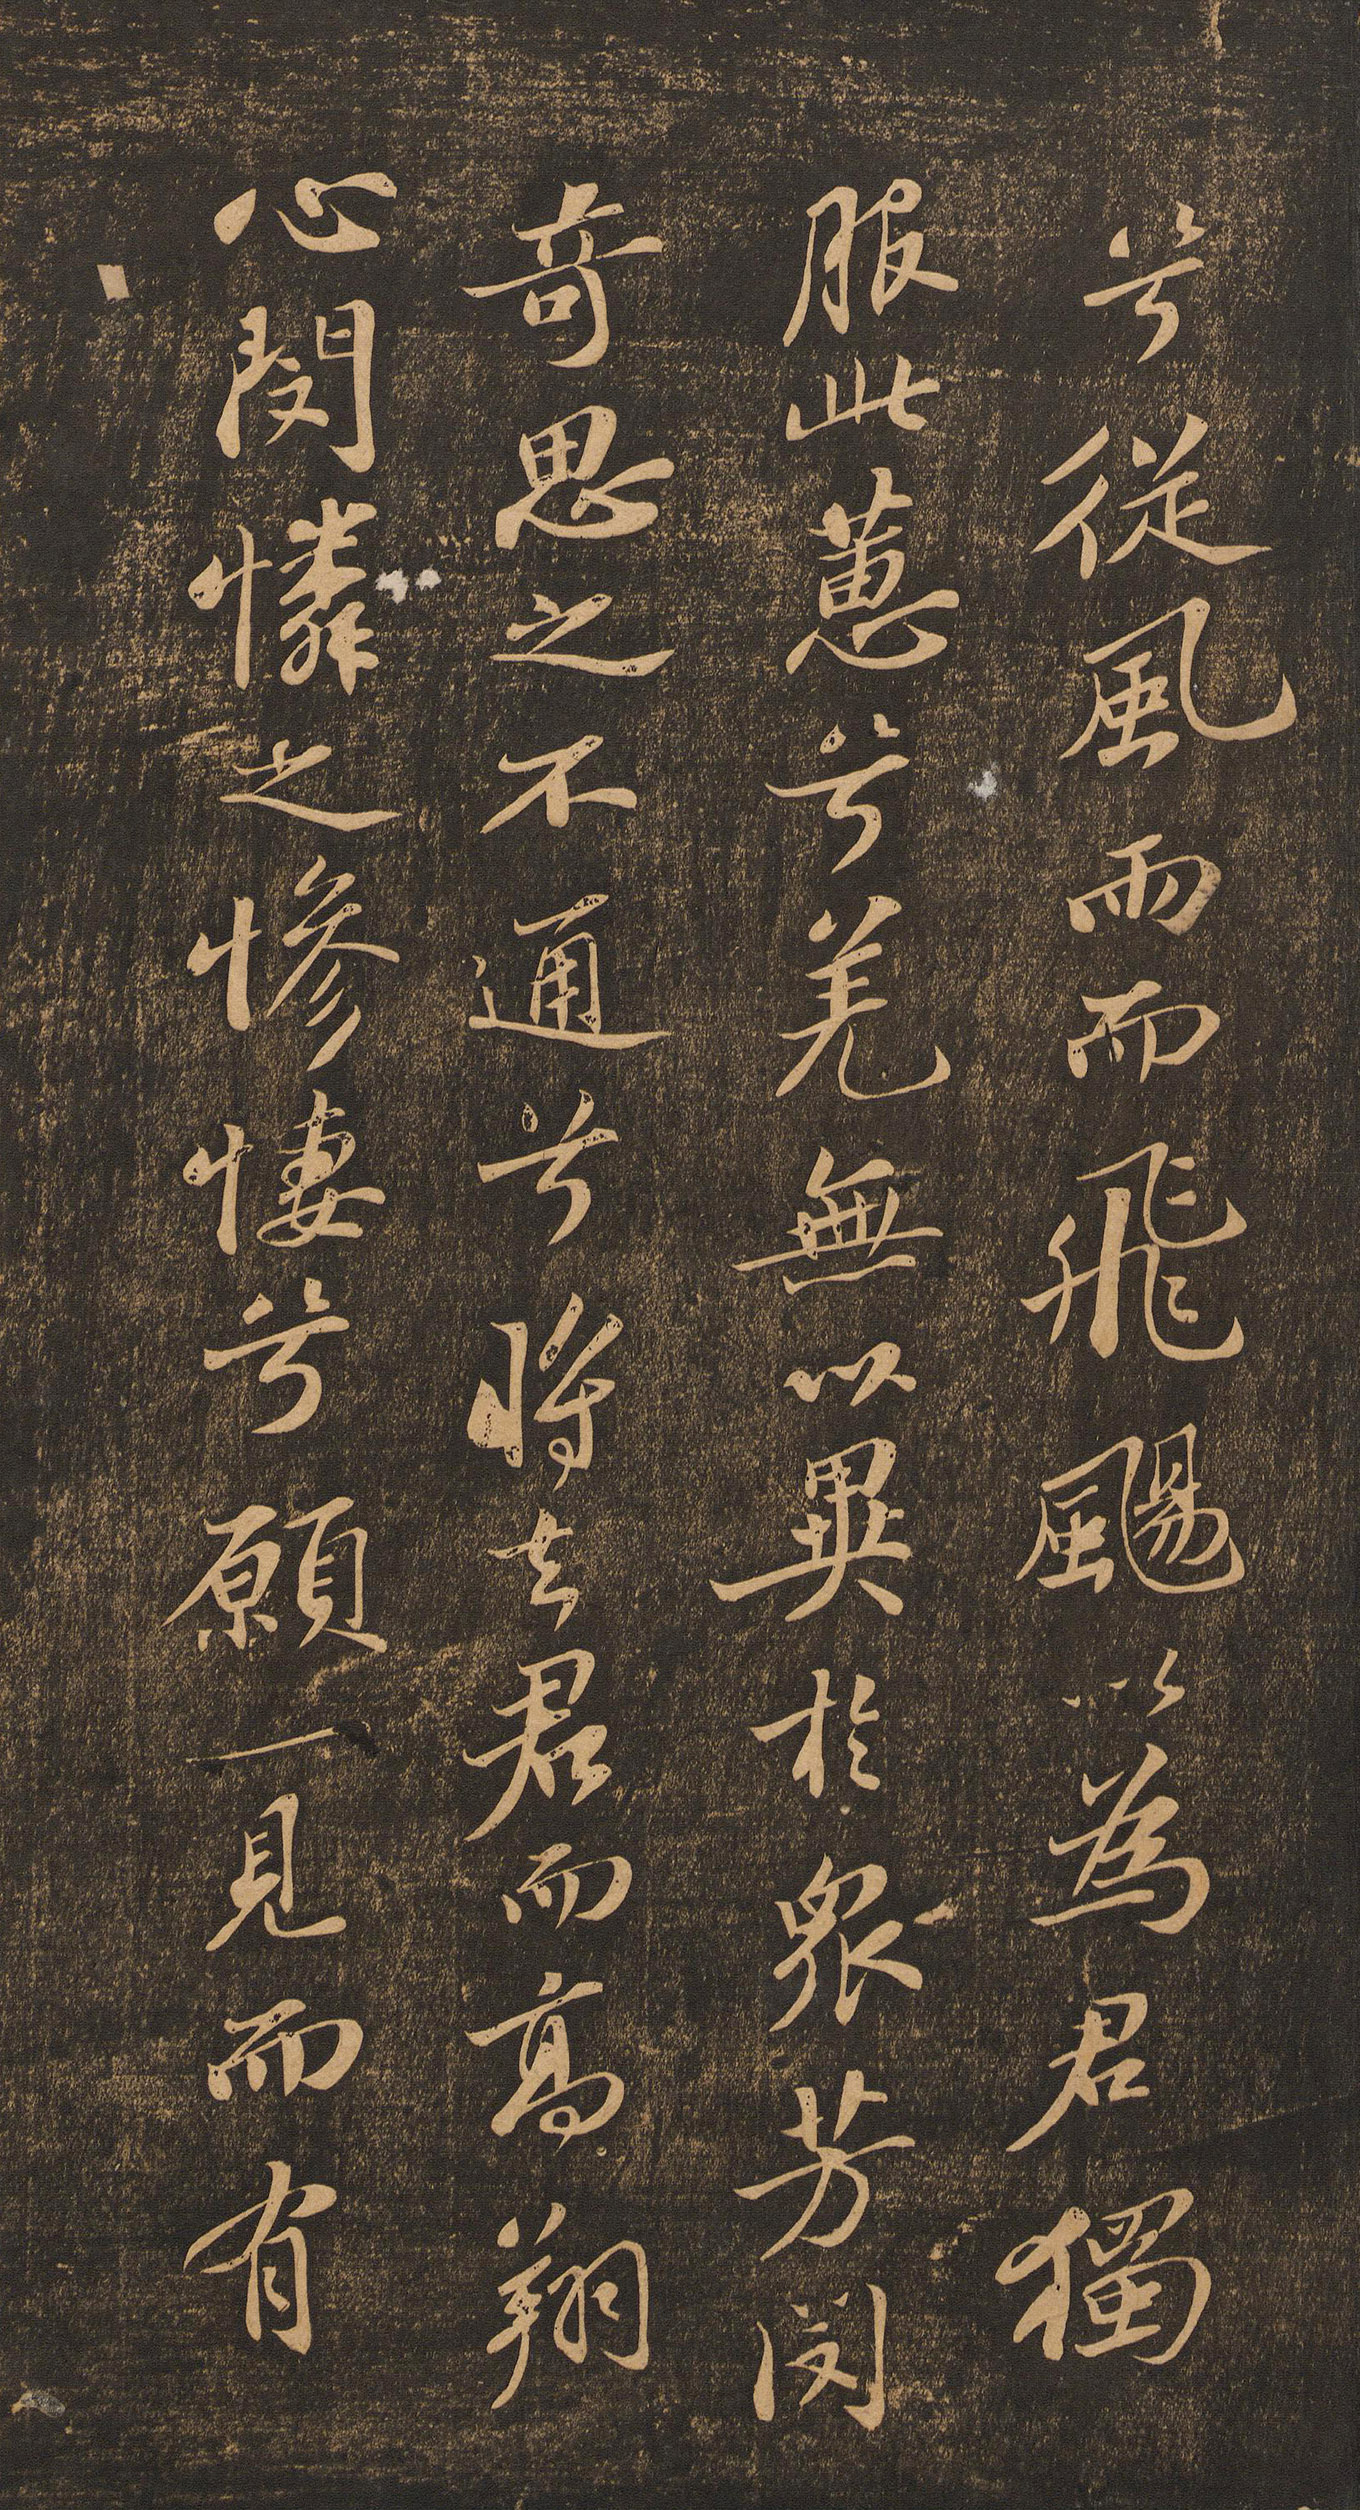 兮從風雨而飛颺以為君獨
服此蕙兮羌無以異於眾芳閔
奇思之不通兮將去君而高翔
心閔憐之慘悽兮願一見而有